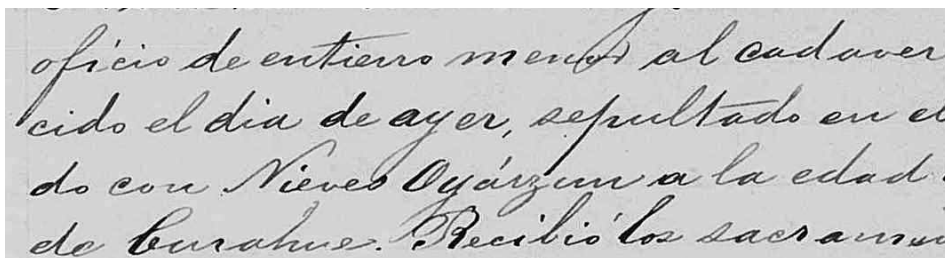 oficio de entierro menor al cadaver
cido el dia de ayer, sepultado en el
do con Nieves Oyárzun a la edad
de Curahue. Recibió los sacramen